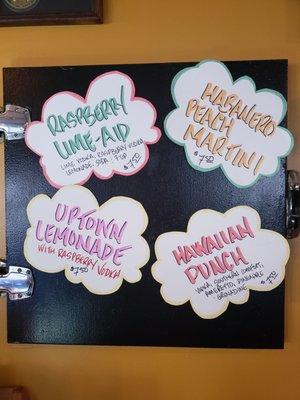 RASPBERRY
LIME-AID
LIME VODKA, RASPBERRY VODKA
LEMONADE, SODA, 7UP
$7.50
HABAÑERO
PEACH
MARTINI
$7.50
UPTOWN
LEMONADE
WITH RASPBERRY VODKA
$7.50
HAWAIIAN
PUNCH
VODKA, SOUTHERN COMFORT,
AMARETTO, PINEAPPLE
GRENADINE
$7.50